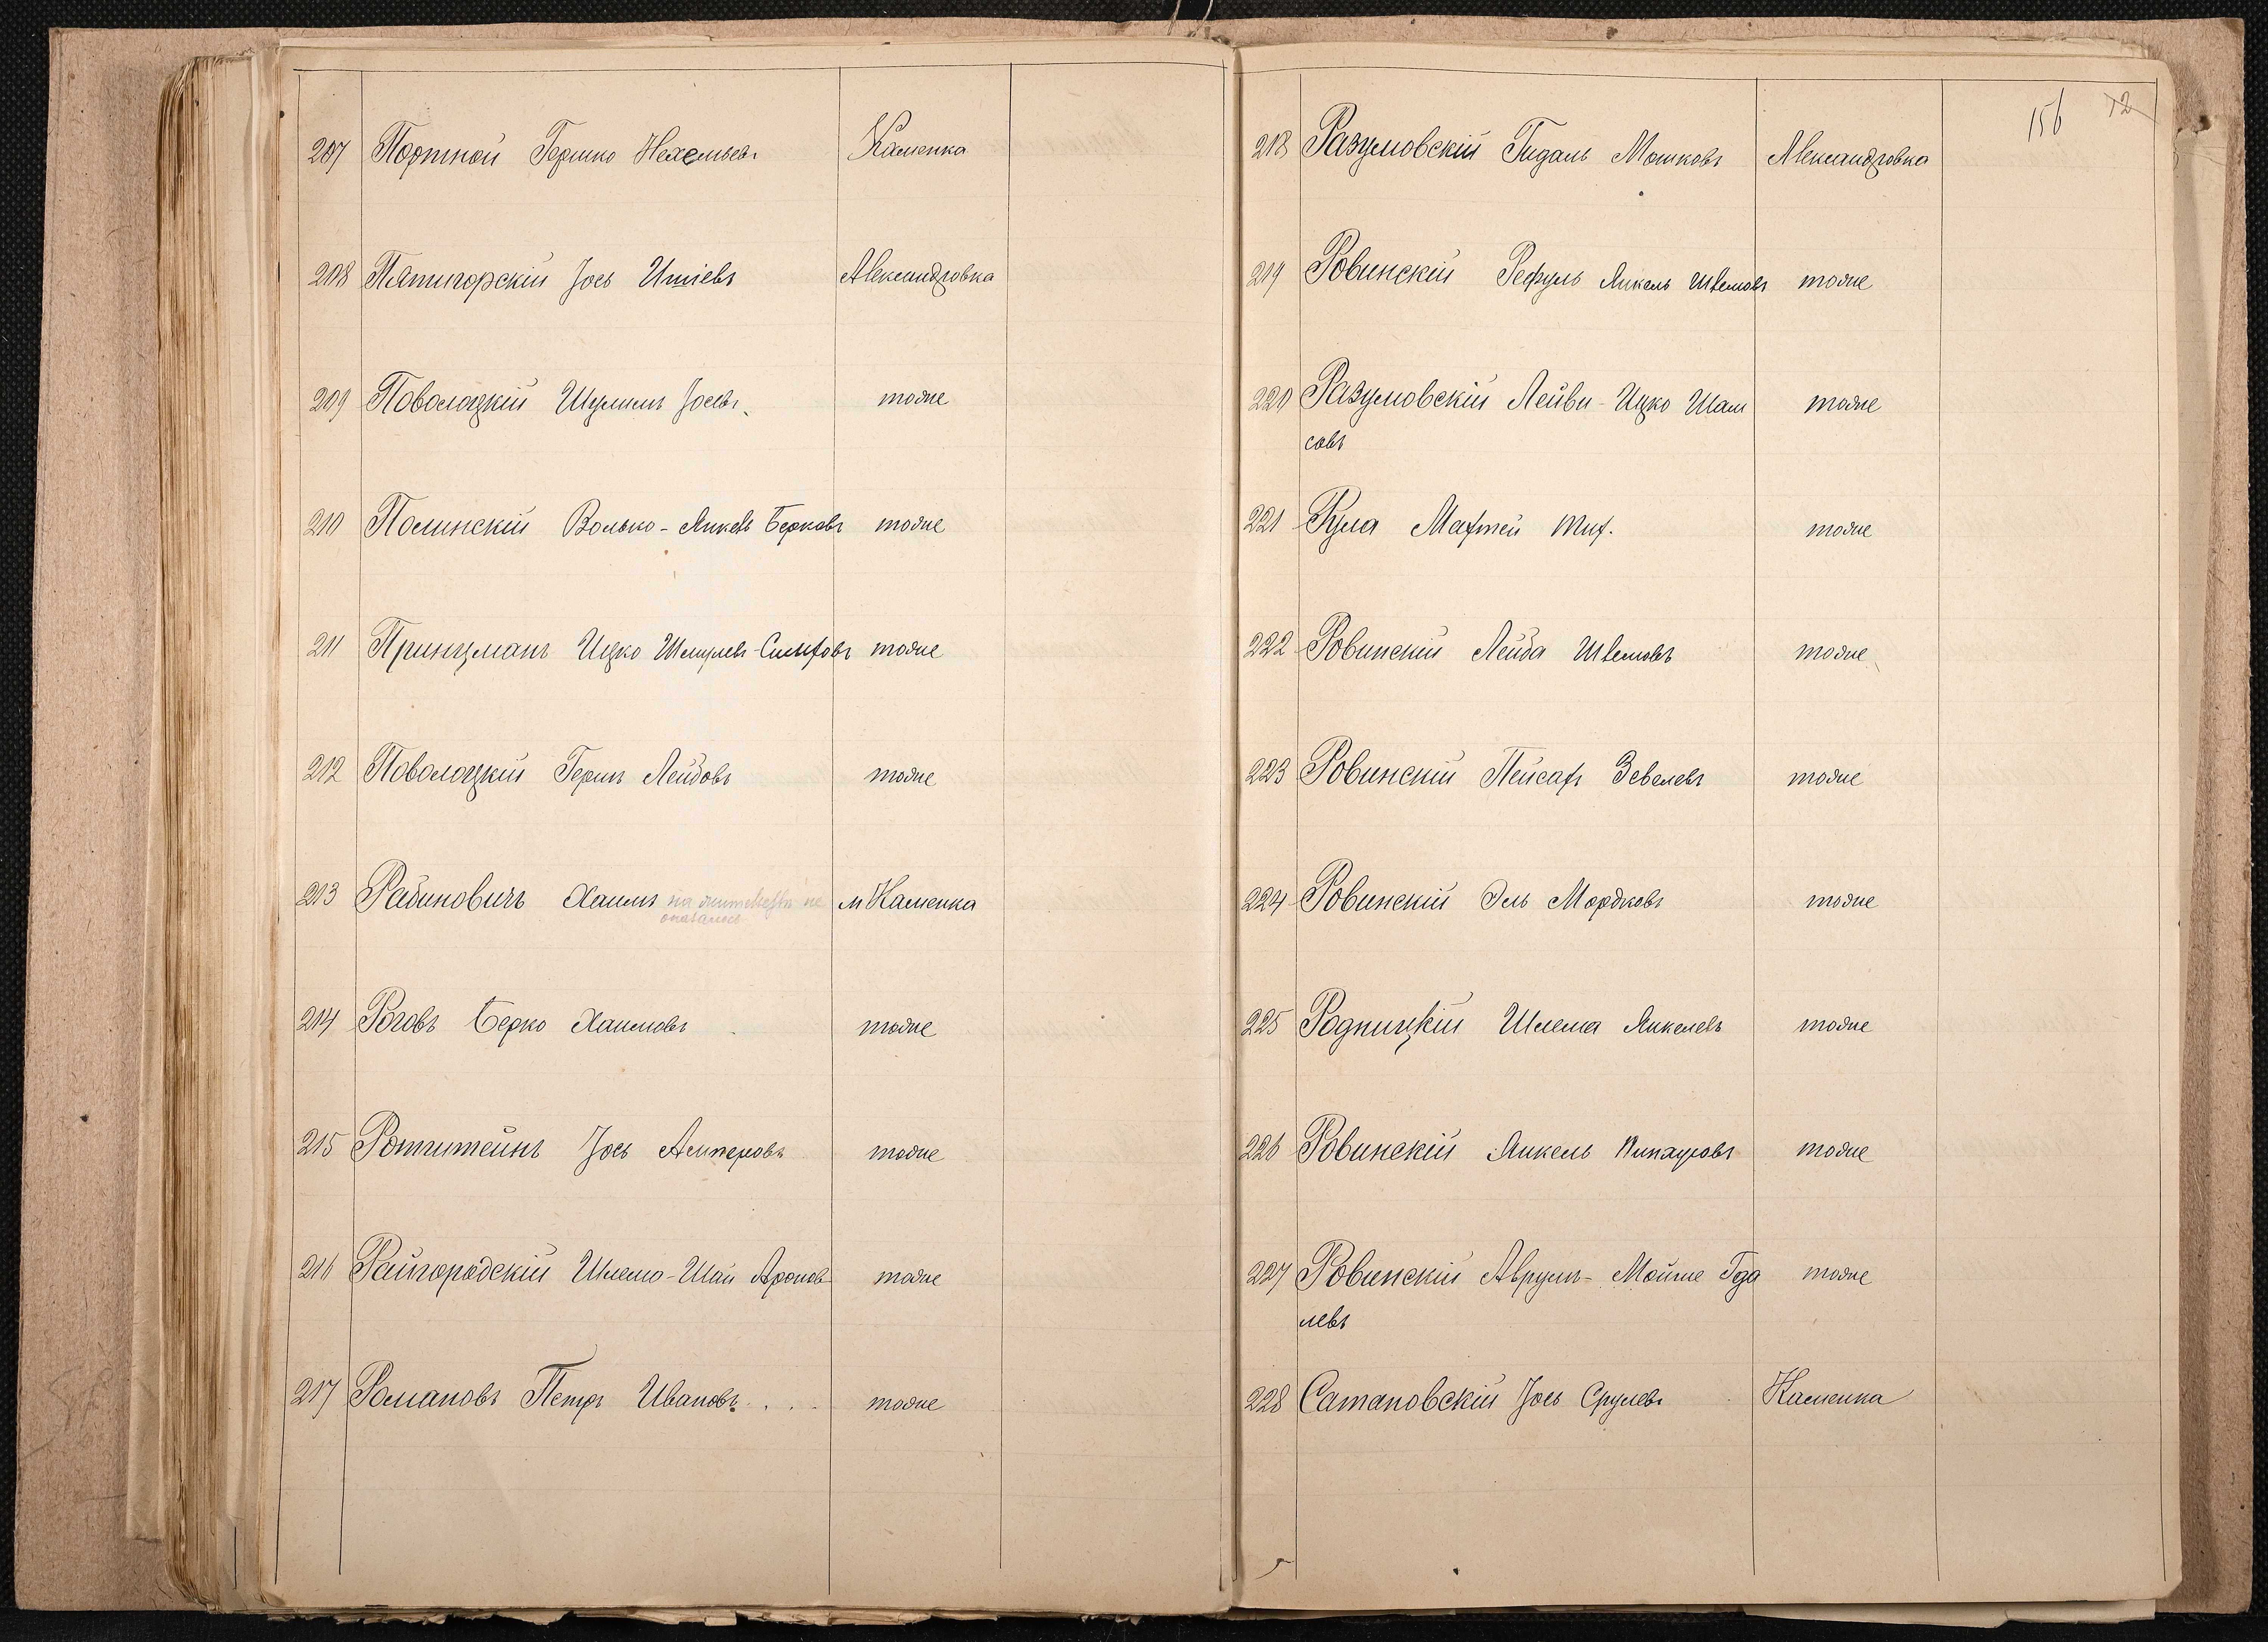 207 Портной Гершко Нехемьевъ Каменка
208 Пятигорскій Іось Итіевъ Александровка
209 Поволоцкій Шулимъ Іосевъ тоже
210 Полинскій Волько-Янкель Берковъ тоже
211 Принцманъ Ицко Шмулевъ-Симховъ тоже
212 Поволоцкій Гершъ Лейбовъ тоже
213 Рабиновичъ Хаимъ на жительстве не м Каменка
оказалось
214 Роговъ Берко Хаимовъ тоже
215 Ротштейнъ Іось Алтеровъ тоже
216 Райгородскій Шлемо-Шая Ароновъ тоже
217 Романовъ Петръ Ивановъ.... тоже
156 12
218 Разумовскій Гидаль Мошковъ Александровка
219 Ровинскій Рефуль Янкель Шлемовъ тоже
220 Разумовскій Лейви-Ицко Шам
совъ тоже
221 Рула Матфей Тих. тоже
222 Ровинскій Лейба Шлемовъ тоже
223 Ровинскій Пейсахъ Зевелевъ тоже
224 Ровинскій Эль Мордковъ тоже
225 Родницкій Шлема Янкелевъ тоже
226 Ровинскій Янкель Пинхусовъ тоже
227 Ровинскій Аврумъ-Мойше Гда
левъ тоже
228 Сатановскій Іось Срулевъ Каменка